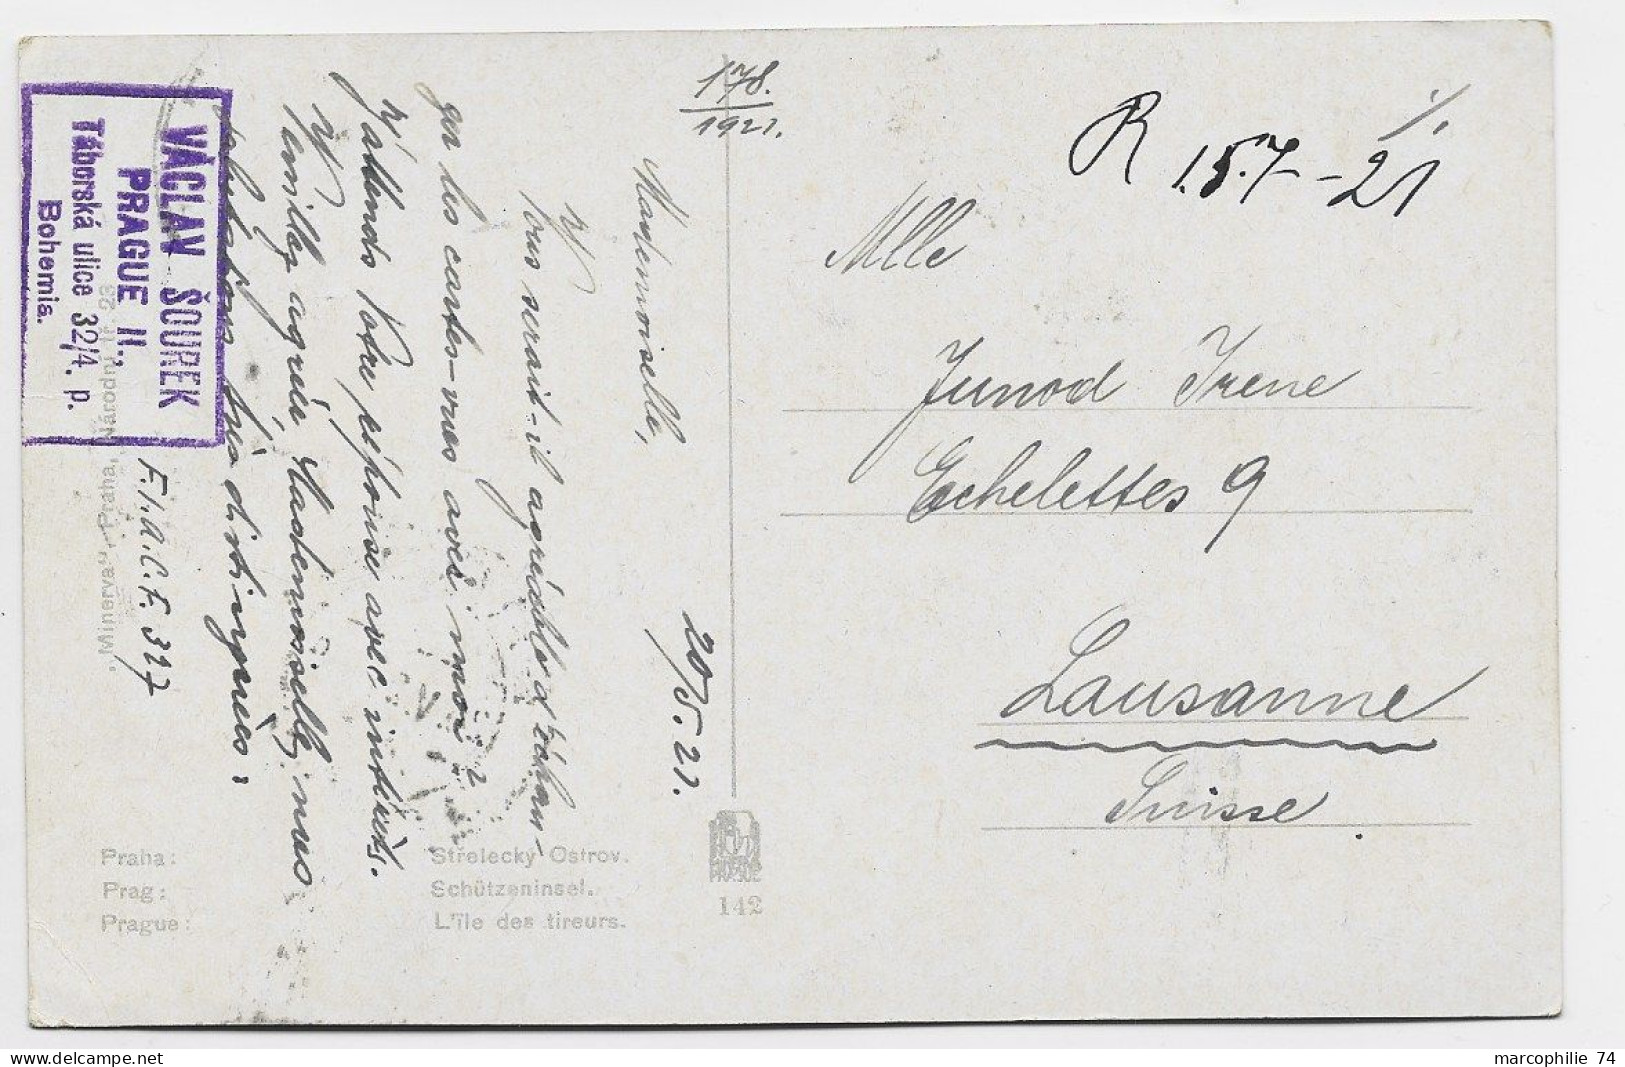 178.
1921.
R 15.7-21
1/.
Mlle
Junod Irene
Echelettes 9
Lausanne
Suisse
20/5.21.
Mademoiselle,
Vous serait-il agréable d'échan-
ger les cartes-vues avec moi?
J'attends Votre réponse avec intérêts.
Veuillez agréer, Mademoiselle, mes
salutations très distinguées.
VÁCLAV ŠOUREK
PRAGUE II.,
Táborská ulice 32/4. p.
Bohemia.
F.I.A.C.E. 327
"Minerva", Praha, Národní tř. 23
Praha: Střelecký Ostrov.
Prag: Schützeninsel.
Prague: L'île des tireurs.
PRAGUE
142
marcophilie 74